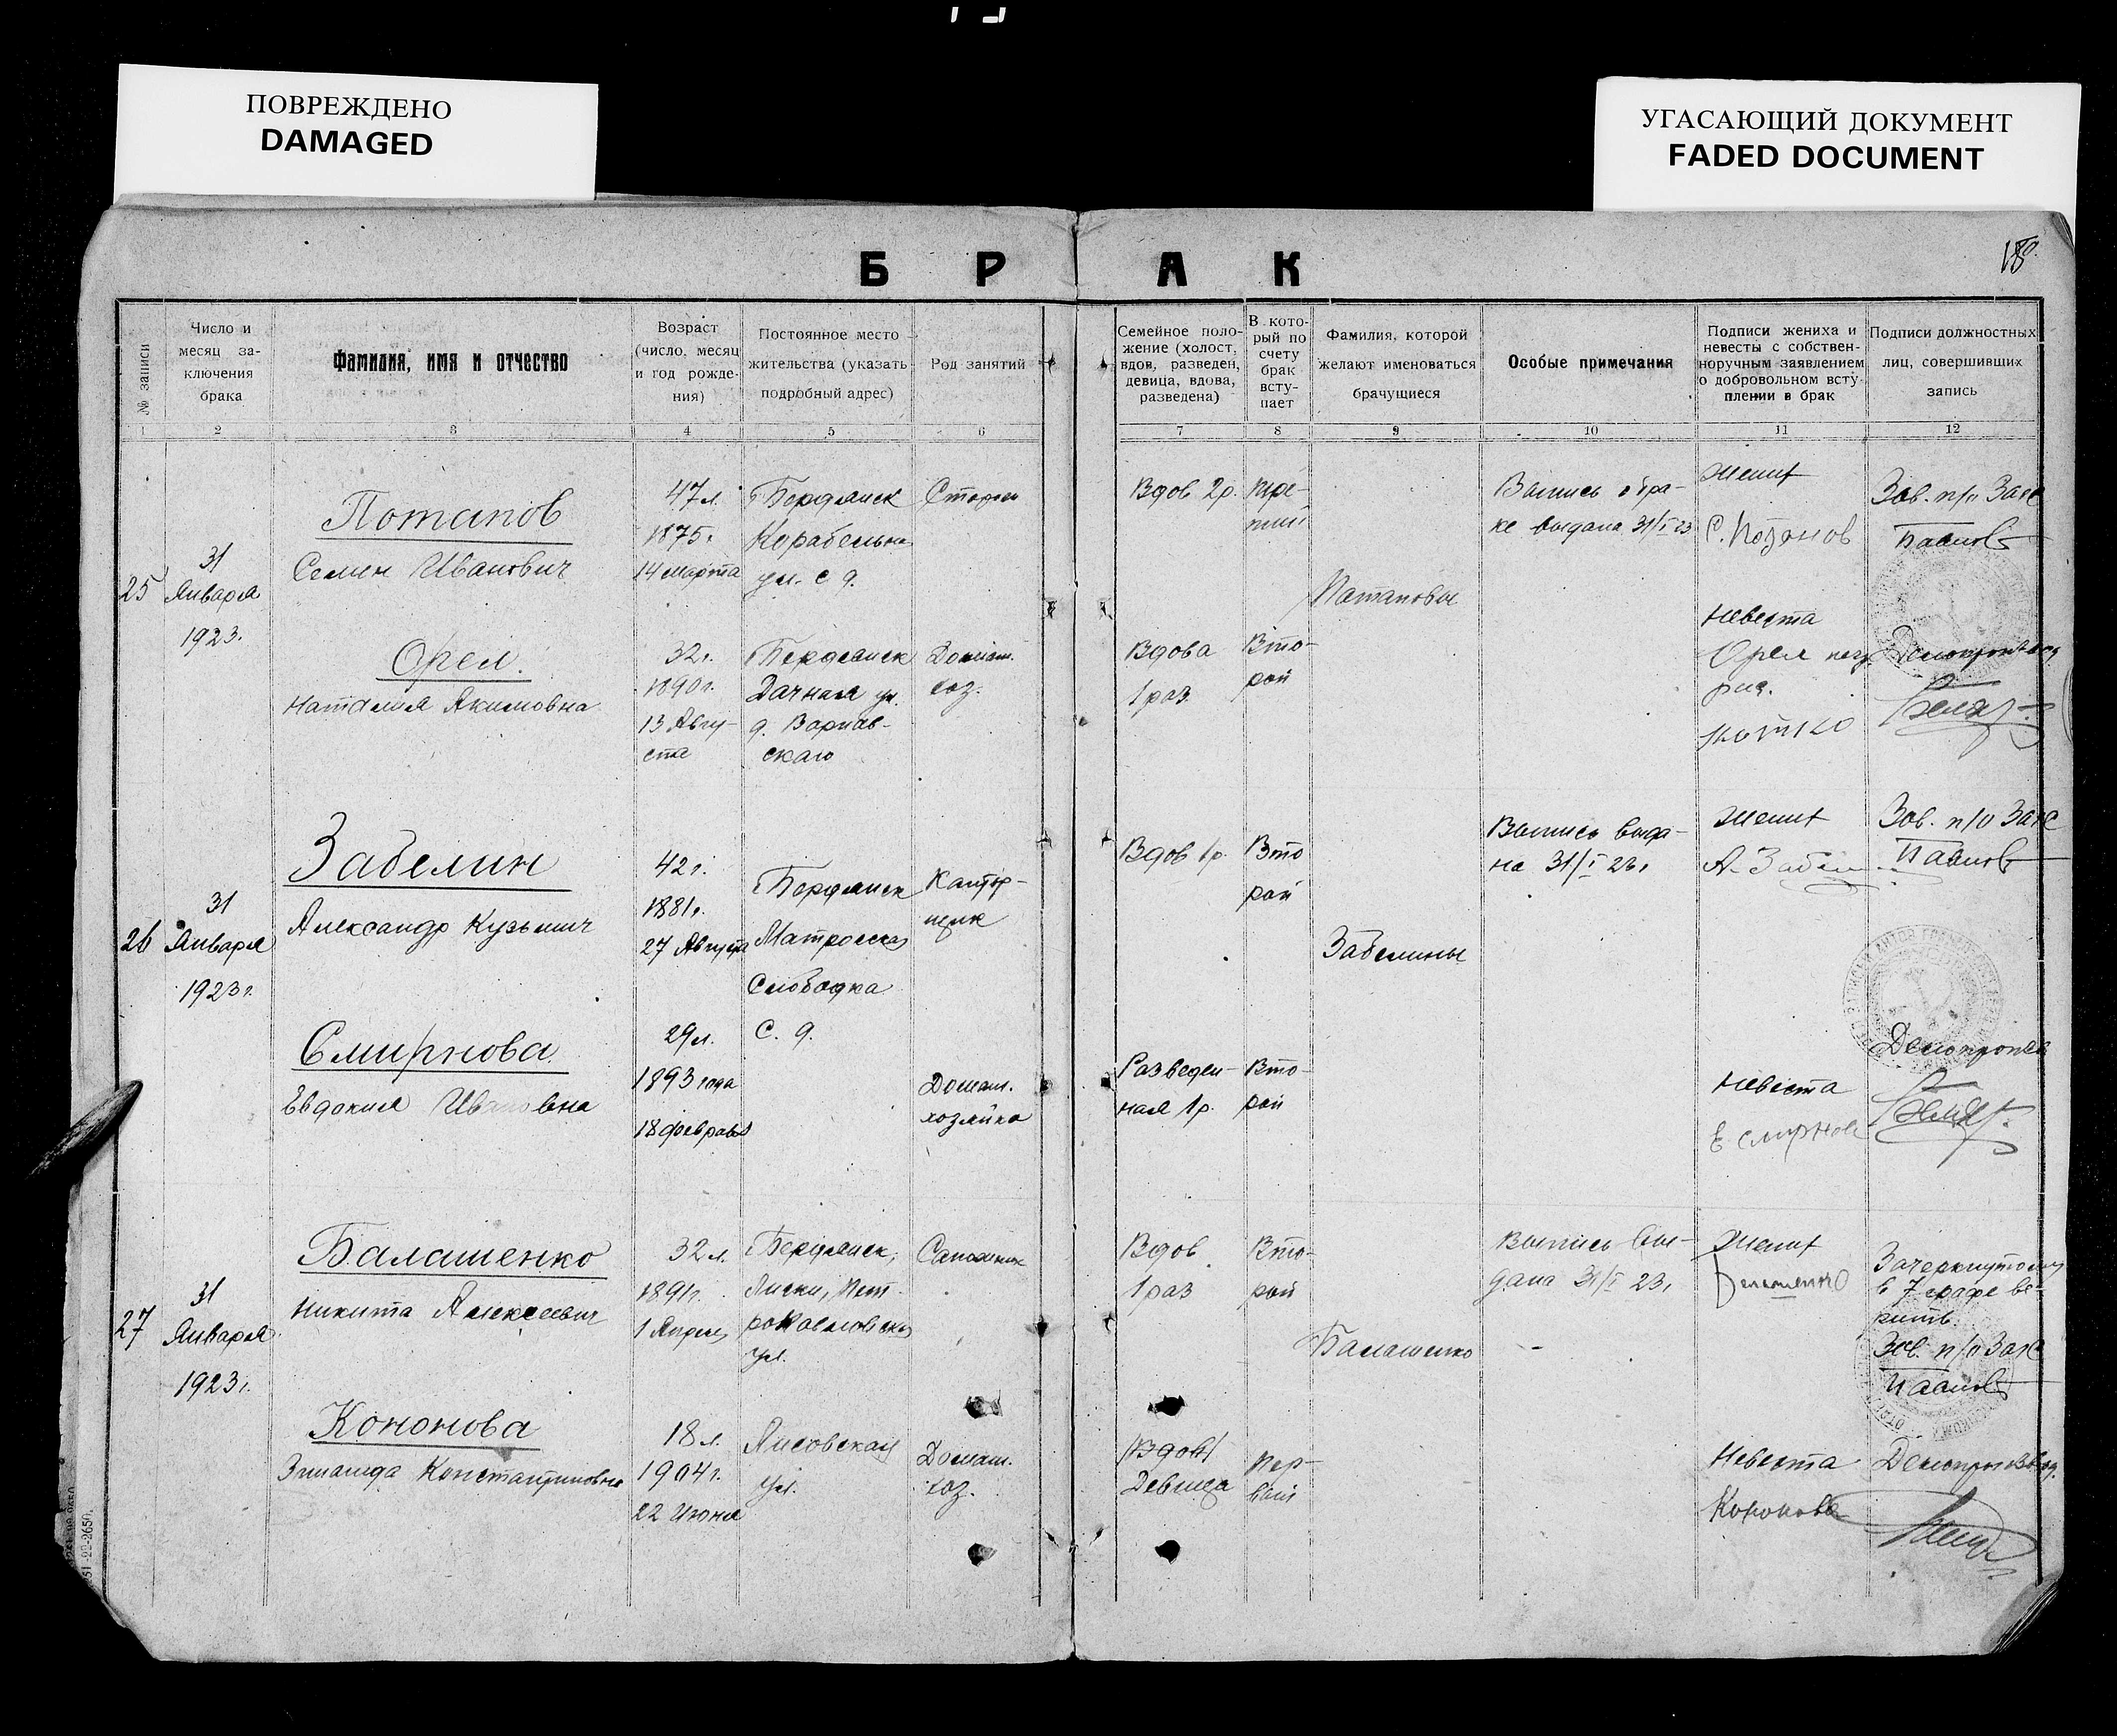 ПОВРЕЖДЕНО
DAMAGED
УГАСАЮЩИЙ ДОКУМЕНТ
FADED DOCUMENT
БРАК
№ записи
Число и
месяц за-
ключения
брака
Фамилия, имя и отчество
Возраст
(число, месяц
и год рожде-
ния)
Постоянное место
жительства (указать
подробный адрес)
Род занятий
Семейное поло-
жение (холост,
вдов, разведен,
девица, вдова,
разведена)
В кото-
рый по
счету
брак
всту-
пает
Фамилия, которой
желают именоваться
брачущиеся
Особые примечания
Подписи жениха и
невесты с собствен-
норучным заявлением
о добровольном всту-
плении в брак
Подписи должностных
лиц, совершивших
запись
1 2 3 4 5 6 7 8 9 10 11 12
25
31
Января
1923.
Потапов
Семен Иванович
47 л.
1875г.
14 марта
г. Бердянск
Корабельная
ул. с д.
Сторож
Вдов 2р.
Тре-
тий
Потаповы
Выпись о бра-
ке выдана 31/I 23
Жених
Зав. п/о Загс
Орел
Наталия Акимовна
32г.
1890г.
13 Авгу-
ста
Бердянск
Дачная ул.
д. Варнав-
скаго
Домаш.
хоз.
Вдова
1 раз
Вто-
рой
Невеста
Орел
Делопроизвод
26
31
Января
1923г.
Забелин
Александр Кузьмич
42г.
1881г.
27 Августа
г. Бердянск
Матросская
Слободка
С. д.
Контор-
щик
Вдов 1р.
Вто
рой
Забелины
Выпись выда-
на 31/I 23г
Жених
А. Забелин
Зав. п/о Загс
Смирнова
Евдокия Ивановна
29л.
1893 года
18 февраля
Домаш.
хозяйка
Разведен-
ная 1р.
Вто-
рой
Невеста
Е Смирнова
Делопроизв
27
31
Января
1923г.
Балашенко
Никита Алексеевич
32л.
1891г.
1 Апреля
г. Бердянск,
Лиски, Пет-
ропавловская
ул.
Сапожник
Вдов
1 раз
Вто-
рой
Балашенко
Выпись вы-
дана 31/I 23г
Жених
Зачеркнутому
в 7 графе ве-
рить.
Зав. п/о Загс
Кононова
Зинаида Константиновна
18 л.
1904г.
22 Июня
Лисовская
ул.
Домаш.
хоз.
(Вдов)
Девица
Пер-
вый
Невеста
Кононова
Делопроизвод.